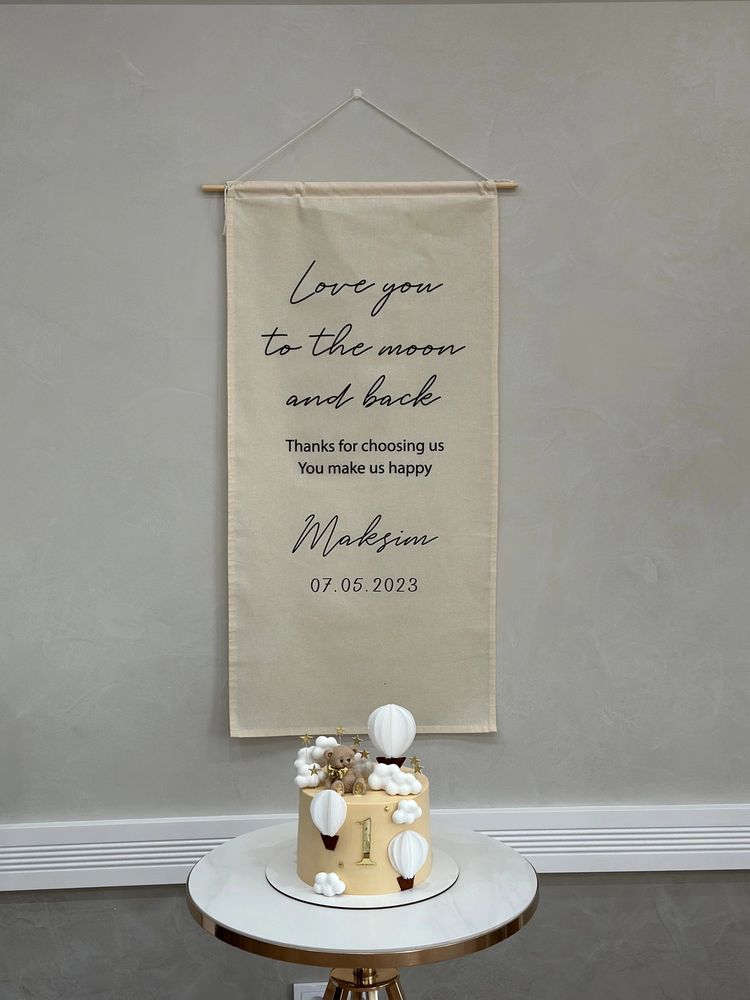 Love you
to the moon
and back
Thanks for choosing us
You make us happy
Maksim
07.05.2023
1